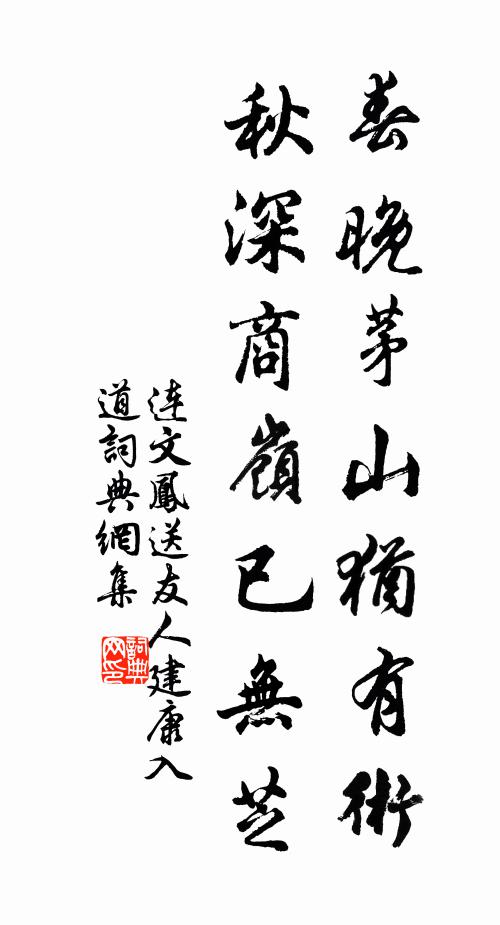 春晚茅山猶有術
秋深商嶺已無芝
連文鳳送友人建康入
道詞典網集
詞典网印